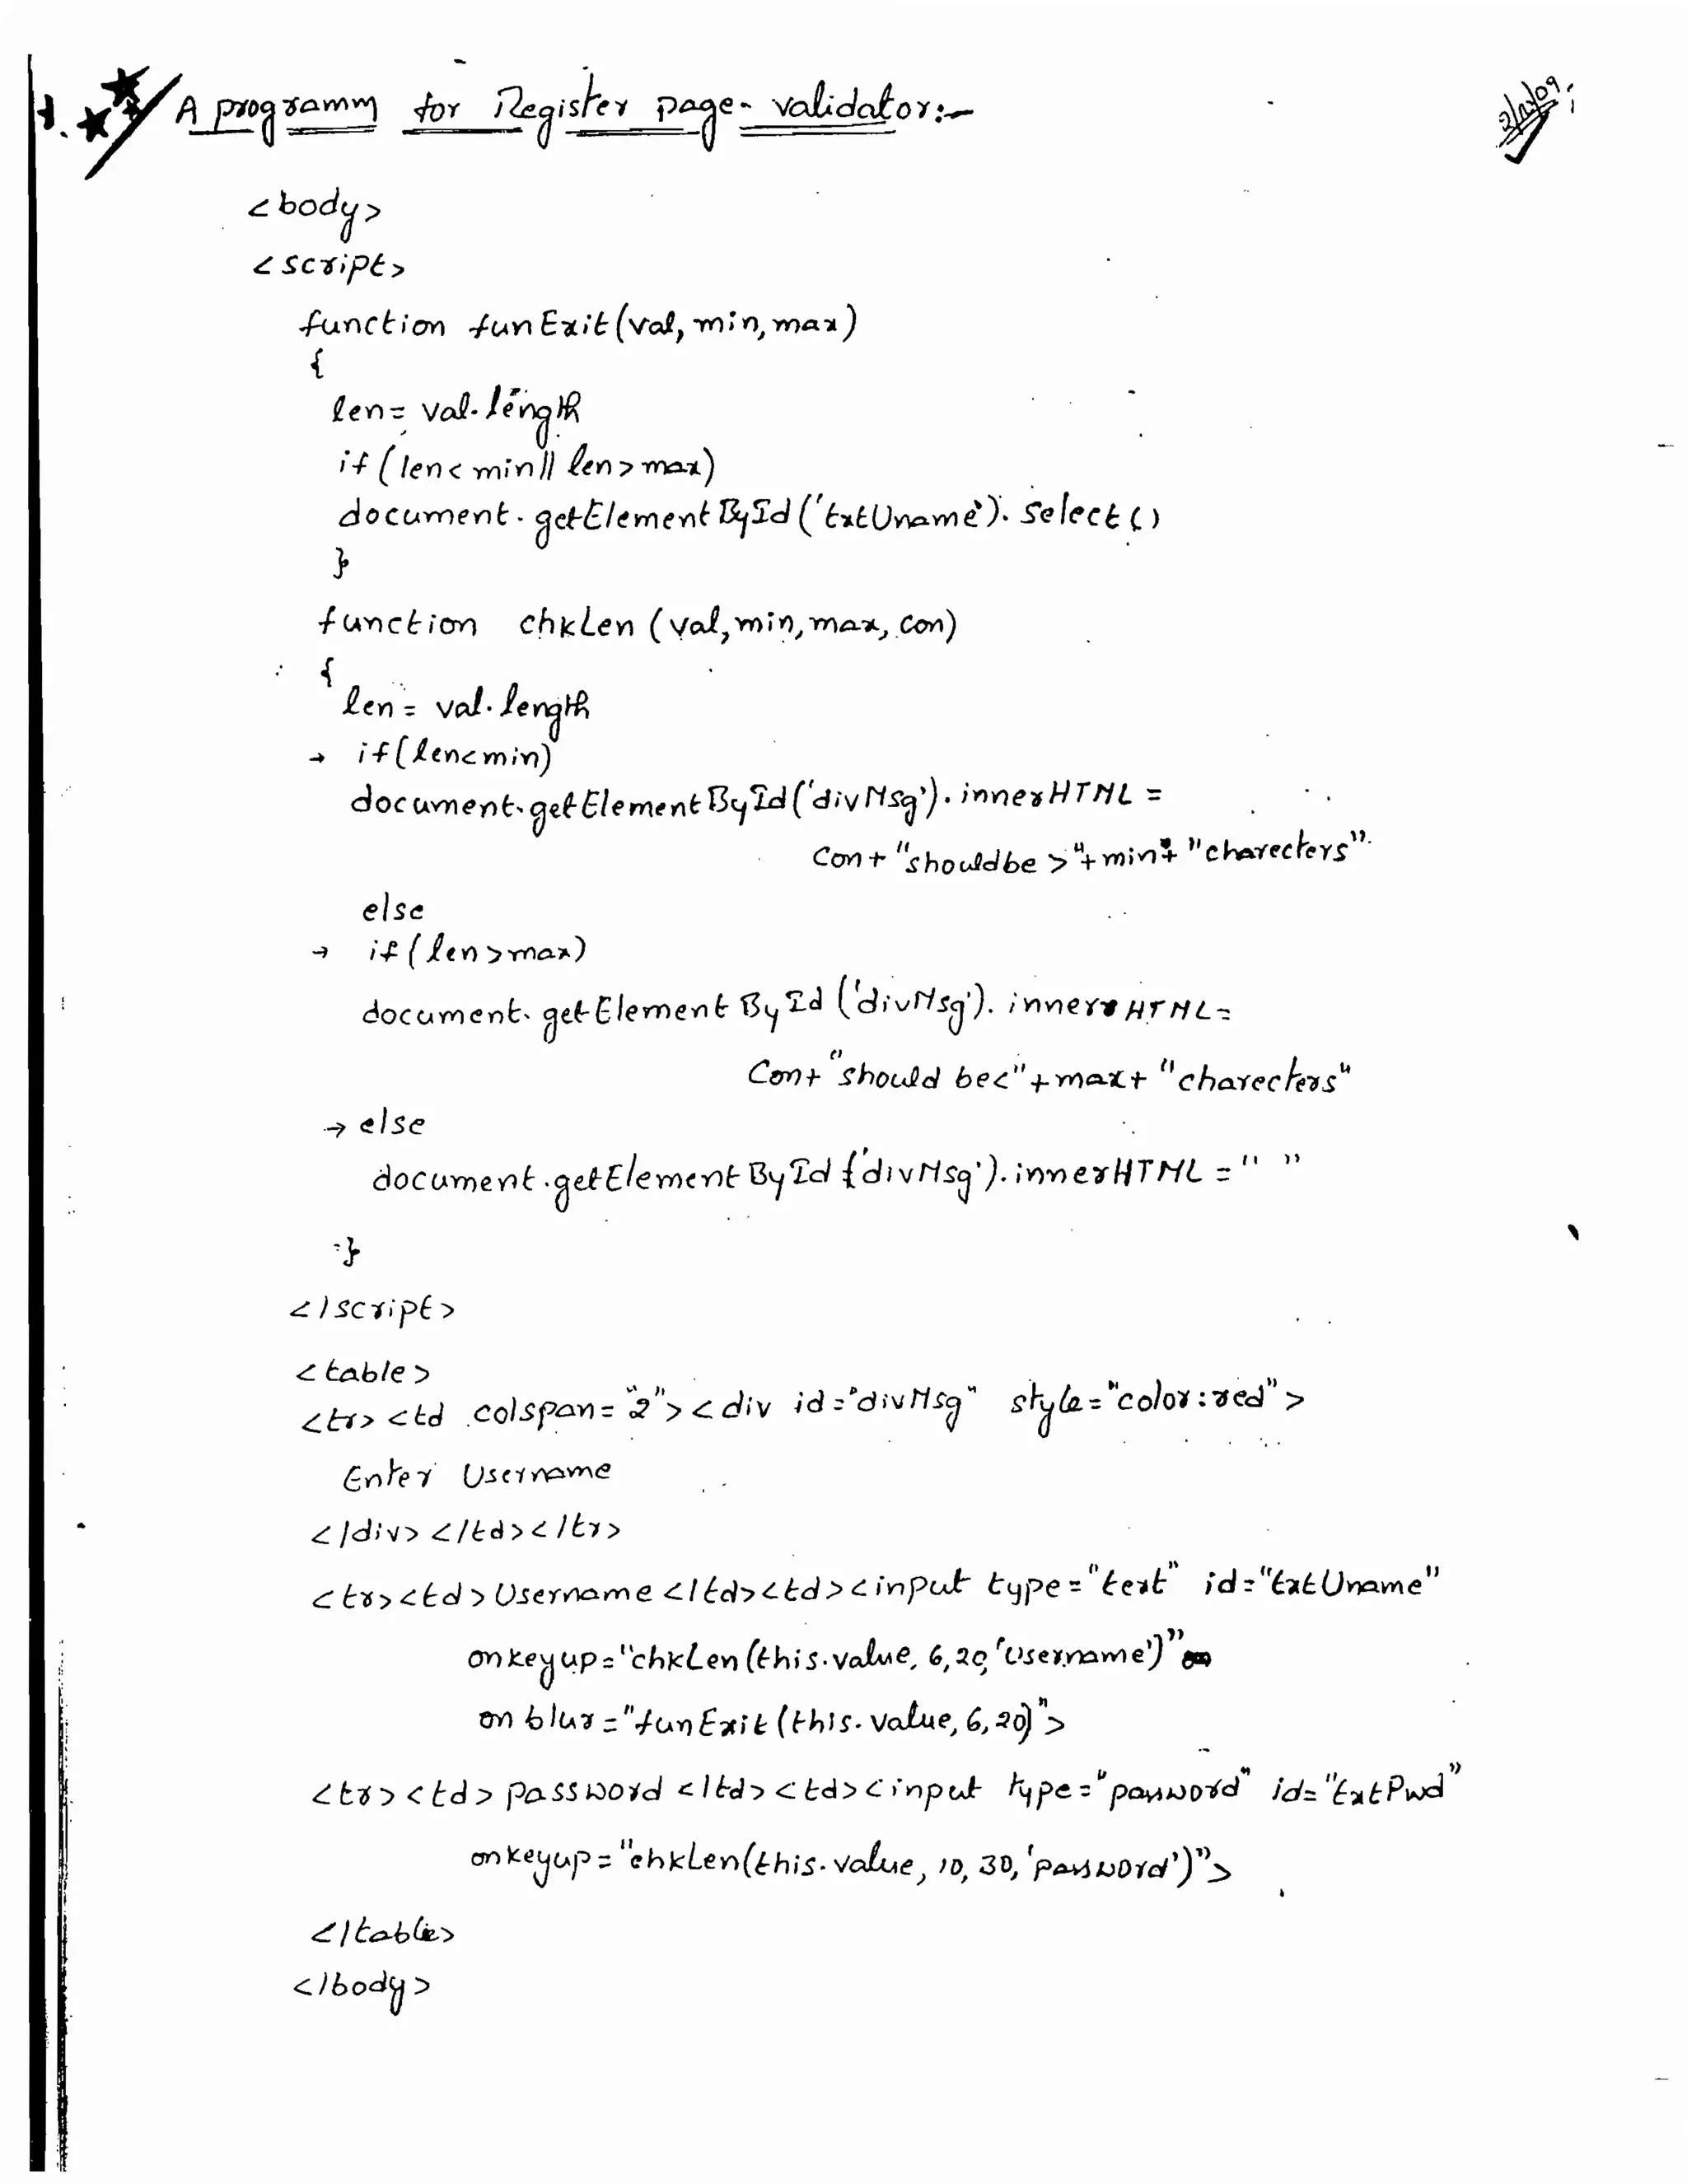 A programm for Register page- validator:-
<body>
<script>
function funExit(val, min, max)
{
len= val.length
if (len< min|| len> max)
document.getElementById('txtUname').select()
}
function chkLen (val, min, max, con)
{
len = val.length
→ if(len<min)
document.getElementById('divMsg').innerHTML =
con+ "shouldbe >"+ min+ "charecters".
else
→ if (len >max)
document.getElementById ('divMsg'). innerHTML=
con+ "should be<"+max+ "charecters"
→ else
document.getElementById ('divMsg').innerHTML = " "
}
</script>
<table>
<tr> <td colspan= "2"> <div id="divMsg" style="color:red">
Enter Username
</div> </td></tr>
<tr><td> Username </td><td><input type="text" id="txtUname"
onkeyup="chkLen(this.value, 6, 20, 'Username')"
onblur="funExit(this.value, 6, 20)">
<tr><td> password </td><td><input type="password" id="txtPwd"
onkeyup="chkLen(this.value, 10, 30, 'password')">
</table>
</body>